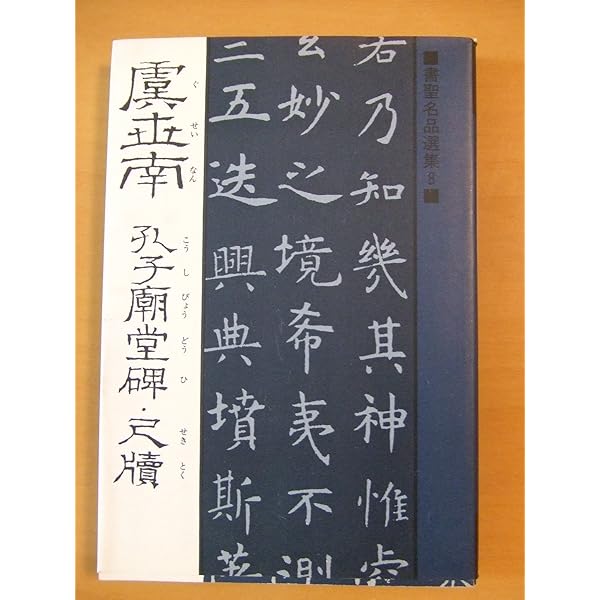 ■書聖名品選集8■
右乃知幾其神惟睿
玄妙之境希夷不測
二五迭興典墳斯著
虞世南
ぐ せい なん
孔子廟堂碑・尺牘
こう し びょう どう ひ せき とく